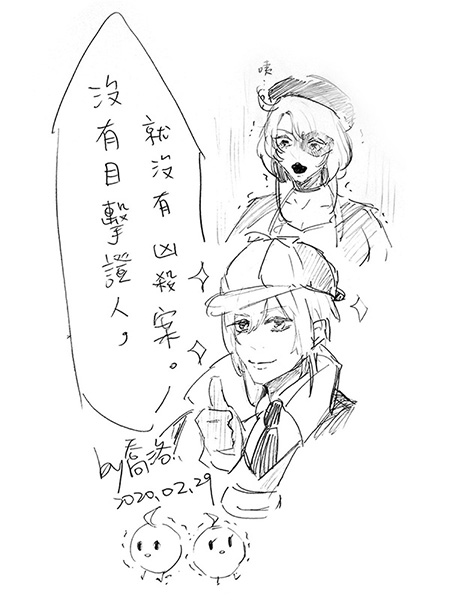 咦
沒有目擊證人，
就沒有凶殺案。
by喬洛！
2020.02.29